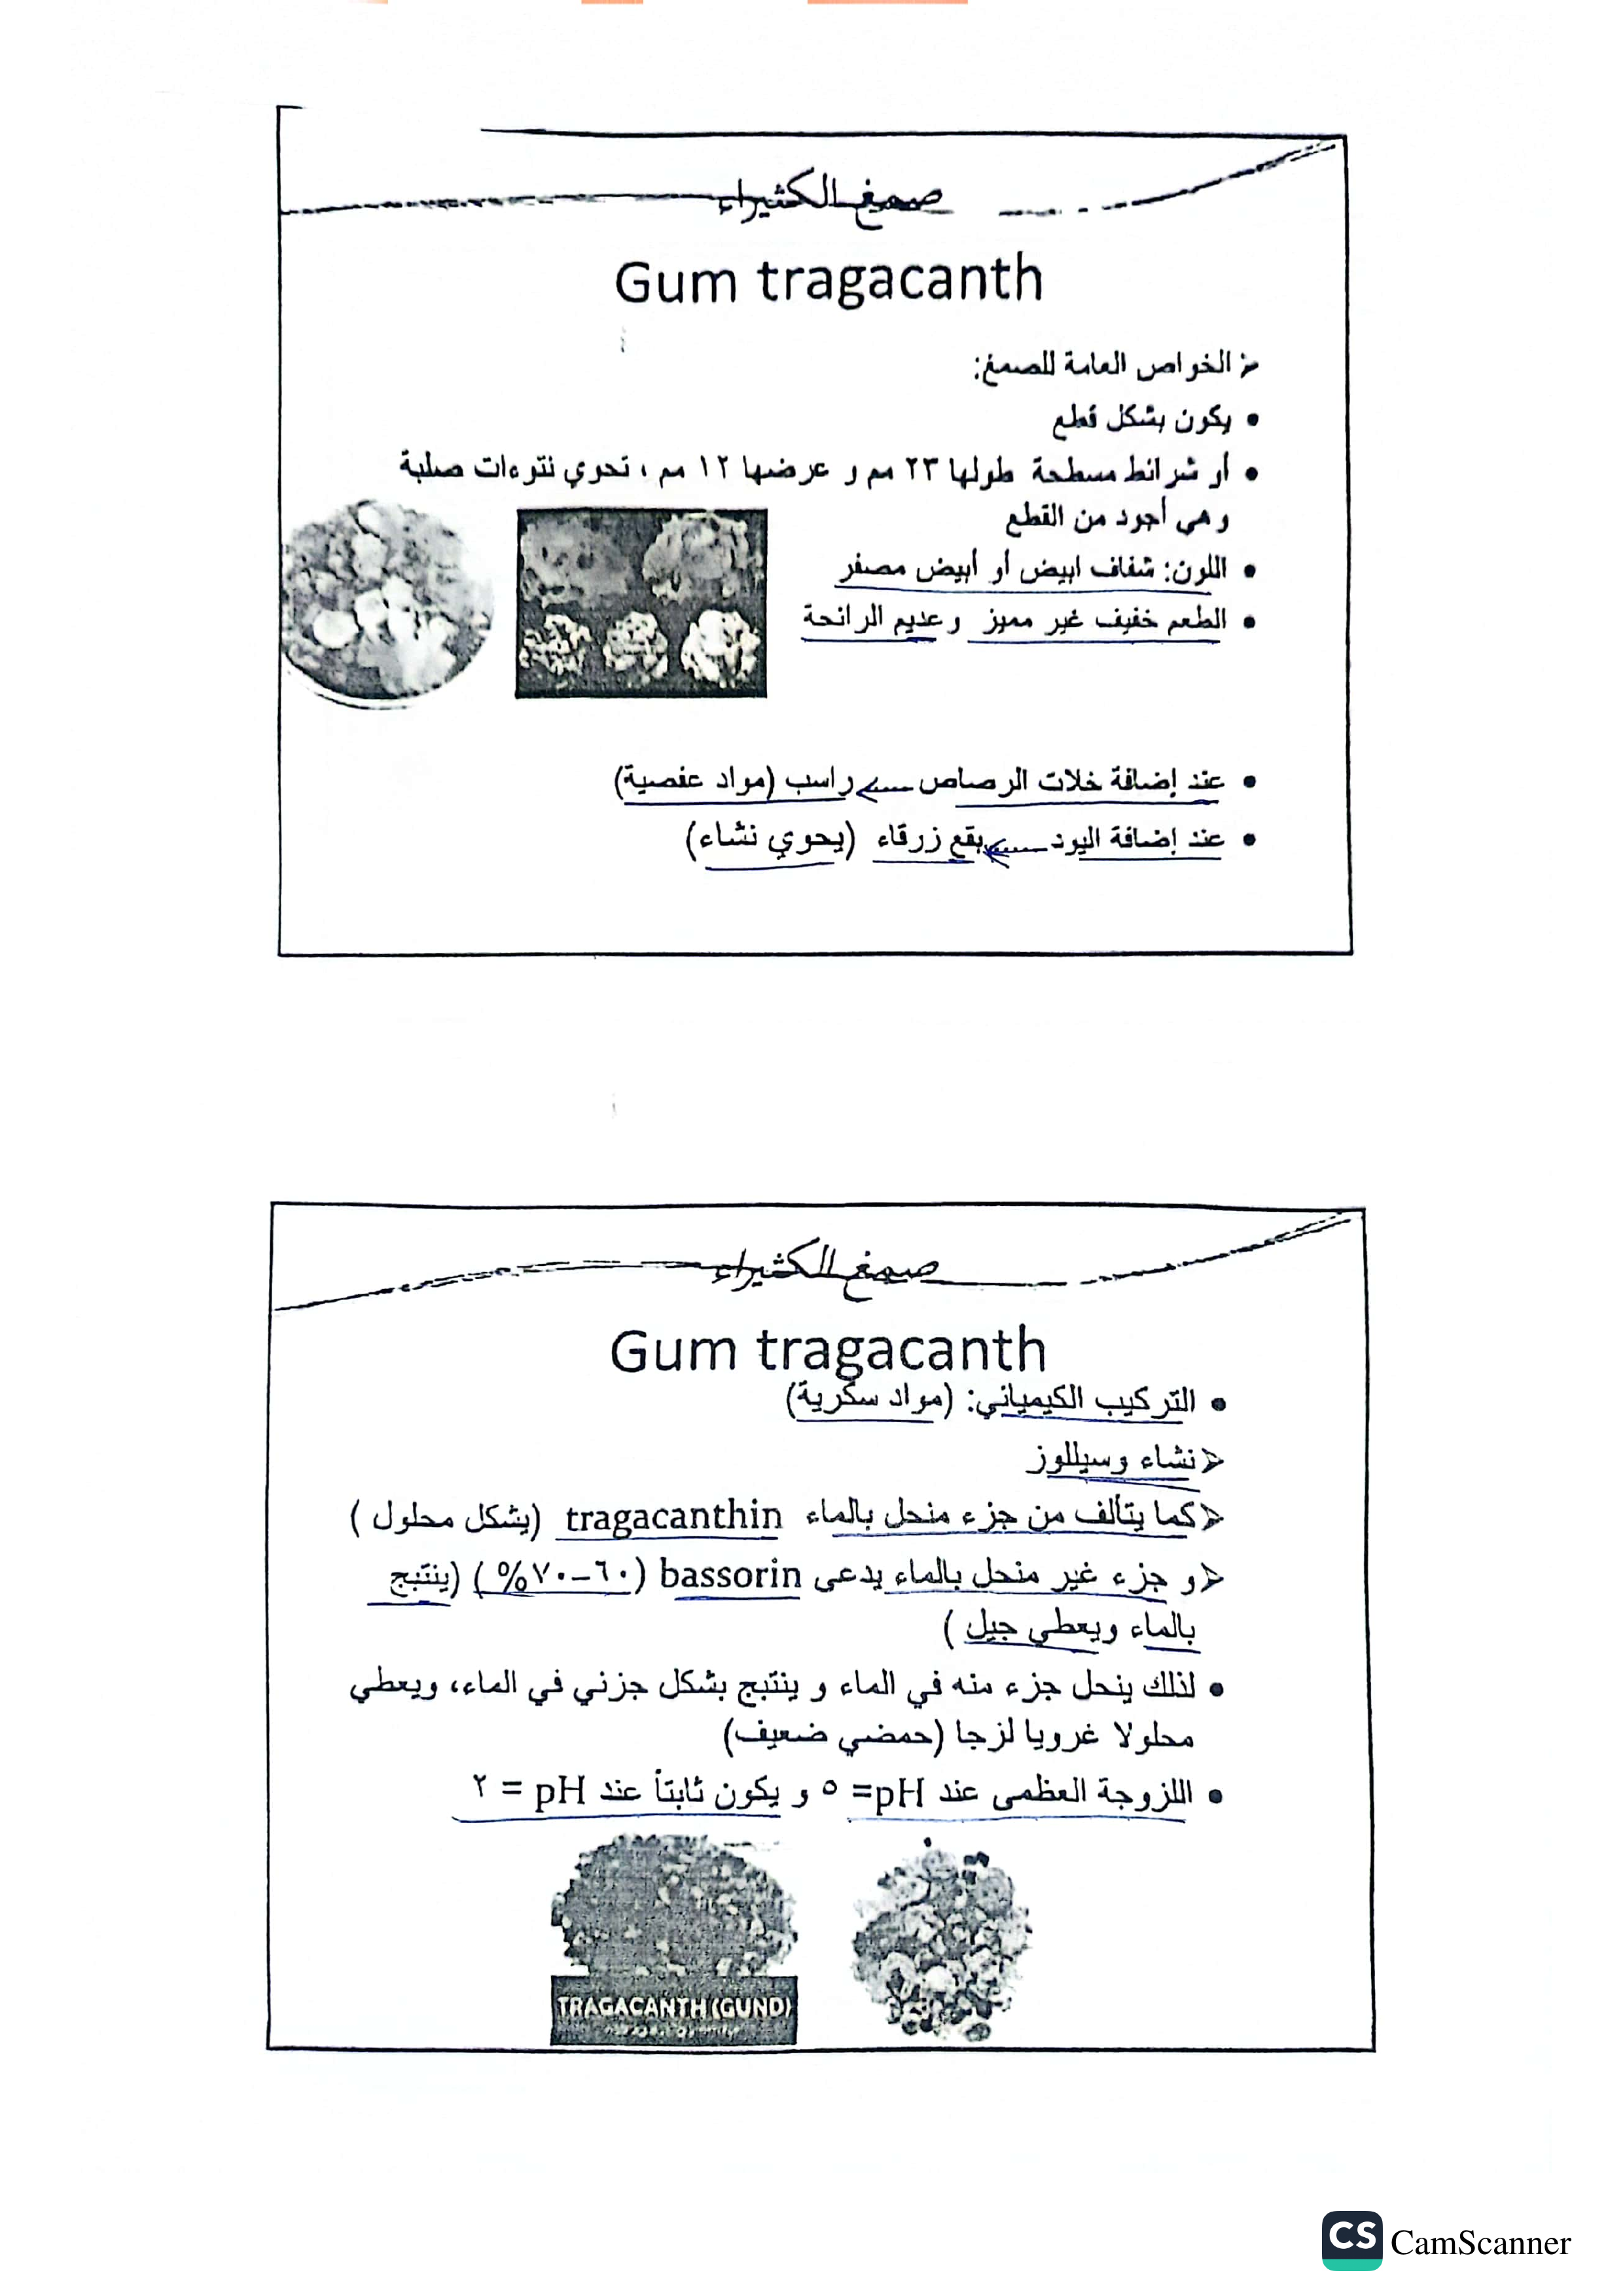 صمغ الكثيراء
Gum tragacanth
➢ الخواص العامة للصمغ:
• يكون بشكل قطع
• أو شرائط مسطحة طولها ٢٣ مم و عرضها ١٢ مم ، تحوي نتوءات صلبة
وهي أجود من القطع
• اللون: شفاف ابيض أو أبيض مصفر
• الطعم خفيف غير مميز وعديم الرائحة
• عند إضافة خلات الرصاص ← راسب (مواد عفصية)
• عند إضافة اليود ← بقع زرقاء (يحوي نشاء)
صمغ الكثيراء
Gum tragacanth
• التركيب الكيميائي: (مواد سكرية)
➢ نشاء وسيللوز
➢ كما يتألف من جزء منحل بالماء tragacanthin (يشكل محلول )
➢ و جزء غير منحل بالماء يدعى bassorin (٦٠-٧٠% ) (ينتبج
بالماء ويعطي جيل )
• لذلك ينحل جزء منه في الماء و ينتبج بشكل جزئي في الماء، ويعطي
محلولا غرويا لزجا (حمضي ضعيف)
• اللزوجة العظمى عند pH= ٥ و يكون ثابتاً عند pH = ٢
TRAGACANTH (GUND)
CS CamScanner